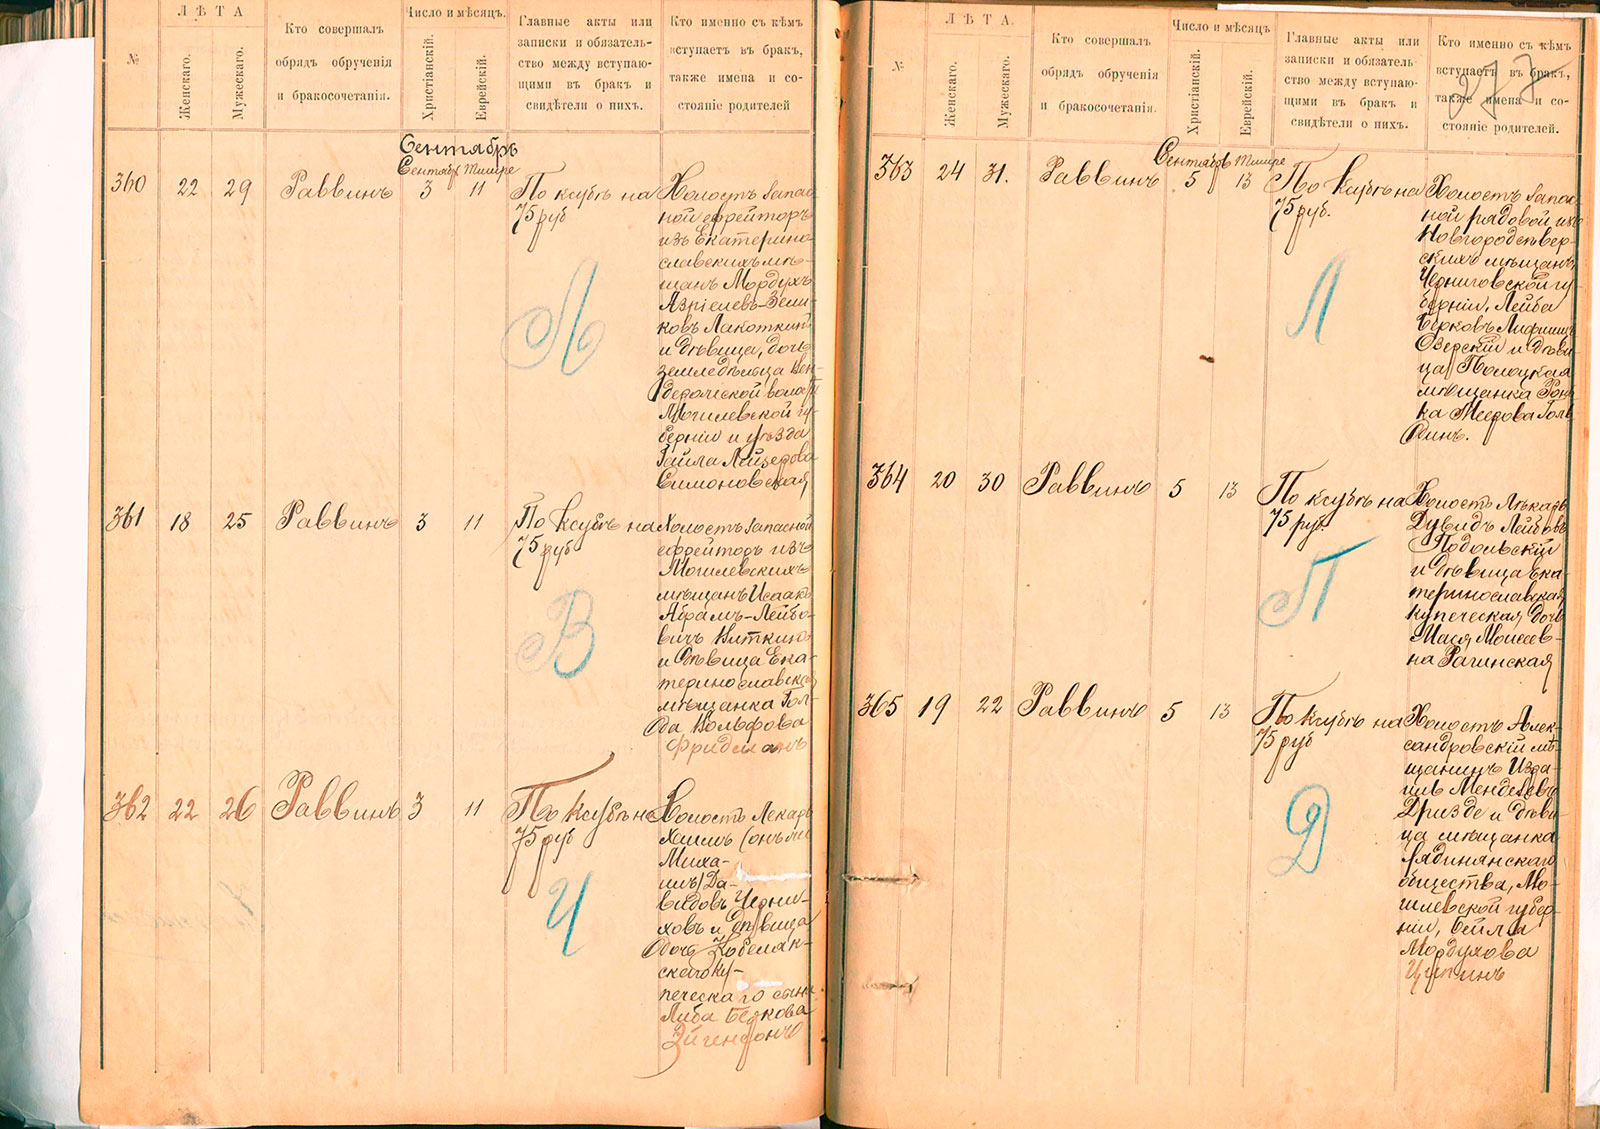 №
ЛѢТА
Женскаго.
Мужескаго.
Кто совершалъ
обрядъ обрученія
и бракосочетанія.
Число и мѣсяцъ.
Христіанскій.
Еврейскій.
Главные акты или
записки и обязатель-
ство между вступаю-
щими въ бракъ и
свидѣтели о нихъ.
Кто именно съ кѣмъ
вступаетъ въ бракъ,
также имена и со-
стояніе родителей
Сентябрь
Сентябр Тишре
360 22 29 Раввинъ 3 11
По ксубѣ на
75 руб
Холостъ запас
ной ефрейторъ
изъ Екатерино
славскихъ мѣ-
щанъ Мордухъ
Азріелевъ-Зели-
ковъ Лакоткинъ
и дѣвица, дочь
земледѣльца
Могилевской гу-
берніи и уѣзда
Гайла Лейзерова
Симоновская
Л
361 18 25 Раввинъ 3 11
По ксубѣ на
75 руб
Холостъ запасной
ефрейторъ изъ
Могилевскихъ
мѣщанъ Исаакъ
Абрамъ-Лейбо-
вичъ Виткинъ
и дѣвица Ека-
теринославская
мѣщанка Гол-
да Вольфова
Фридманъ
В
362 22 26 Раввинъ 3 11
По ксубѣ на
75 руб
Холостъ Лекарь
Хаимъ (онъ же
Миха-
илъ) Да-
видовъ Черни-
ховъ и дѣвица
дочь Кобеляк-
скаго ку-
печескаго сына
Либа Беркова
Эйгенсонъ
Ч
№
ЛѢТА.
Женскаго.
Мужескаго.
Кто совершалъ
обрядъ обрученія
и бракосочетанія.
Число и мѣсяцъ
Христіанскій.
Еврейскій.
Главные акты или
записки и обязатель
ство между вступаю-
щими въ бракъ и
свидѣтели о нихъ.
Кто именно съ кѣмъ
вступаетъ въ бракъ,
также имена и со-
стояніе родителей.
277
Сентябрь Тишре
363 24 31. Раввинъ 5 13
По ксубѣ на
75 руб.
Холостъ запас
ной рядовой изъ
Новгородсѣвер-
скихъ мѣщанъ,
Черниговской гу-
берніи, Лейба
Берковъ Лифшицъ
Озерскій и дѣви
ца Полоцкая
мѣщанка
ка Меерова Голь
динъ.
Л
364 20 30 Раввинъ 5 13
По ксубѣ на
75 руб.
Холостъ Лѣкарь
Дувидъ Лейбовъ
Подольскій
и дѣвица Ека-
теринославская
купеческая дочь
Мася Моисеев-
на Рагинская
П
365 19 22 Раввинъ 5 13
По ксубѣ на
75 руб
Холостъ Алек-
сандровскій мѣ-
щанинъ Изра-
иль Менделевъ
Дризде и дѣви-
ца мѣщанка
общества, Мо-
гилевской губер-
ніи, Бейла
Мордухова
Ципинъ
Д